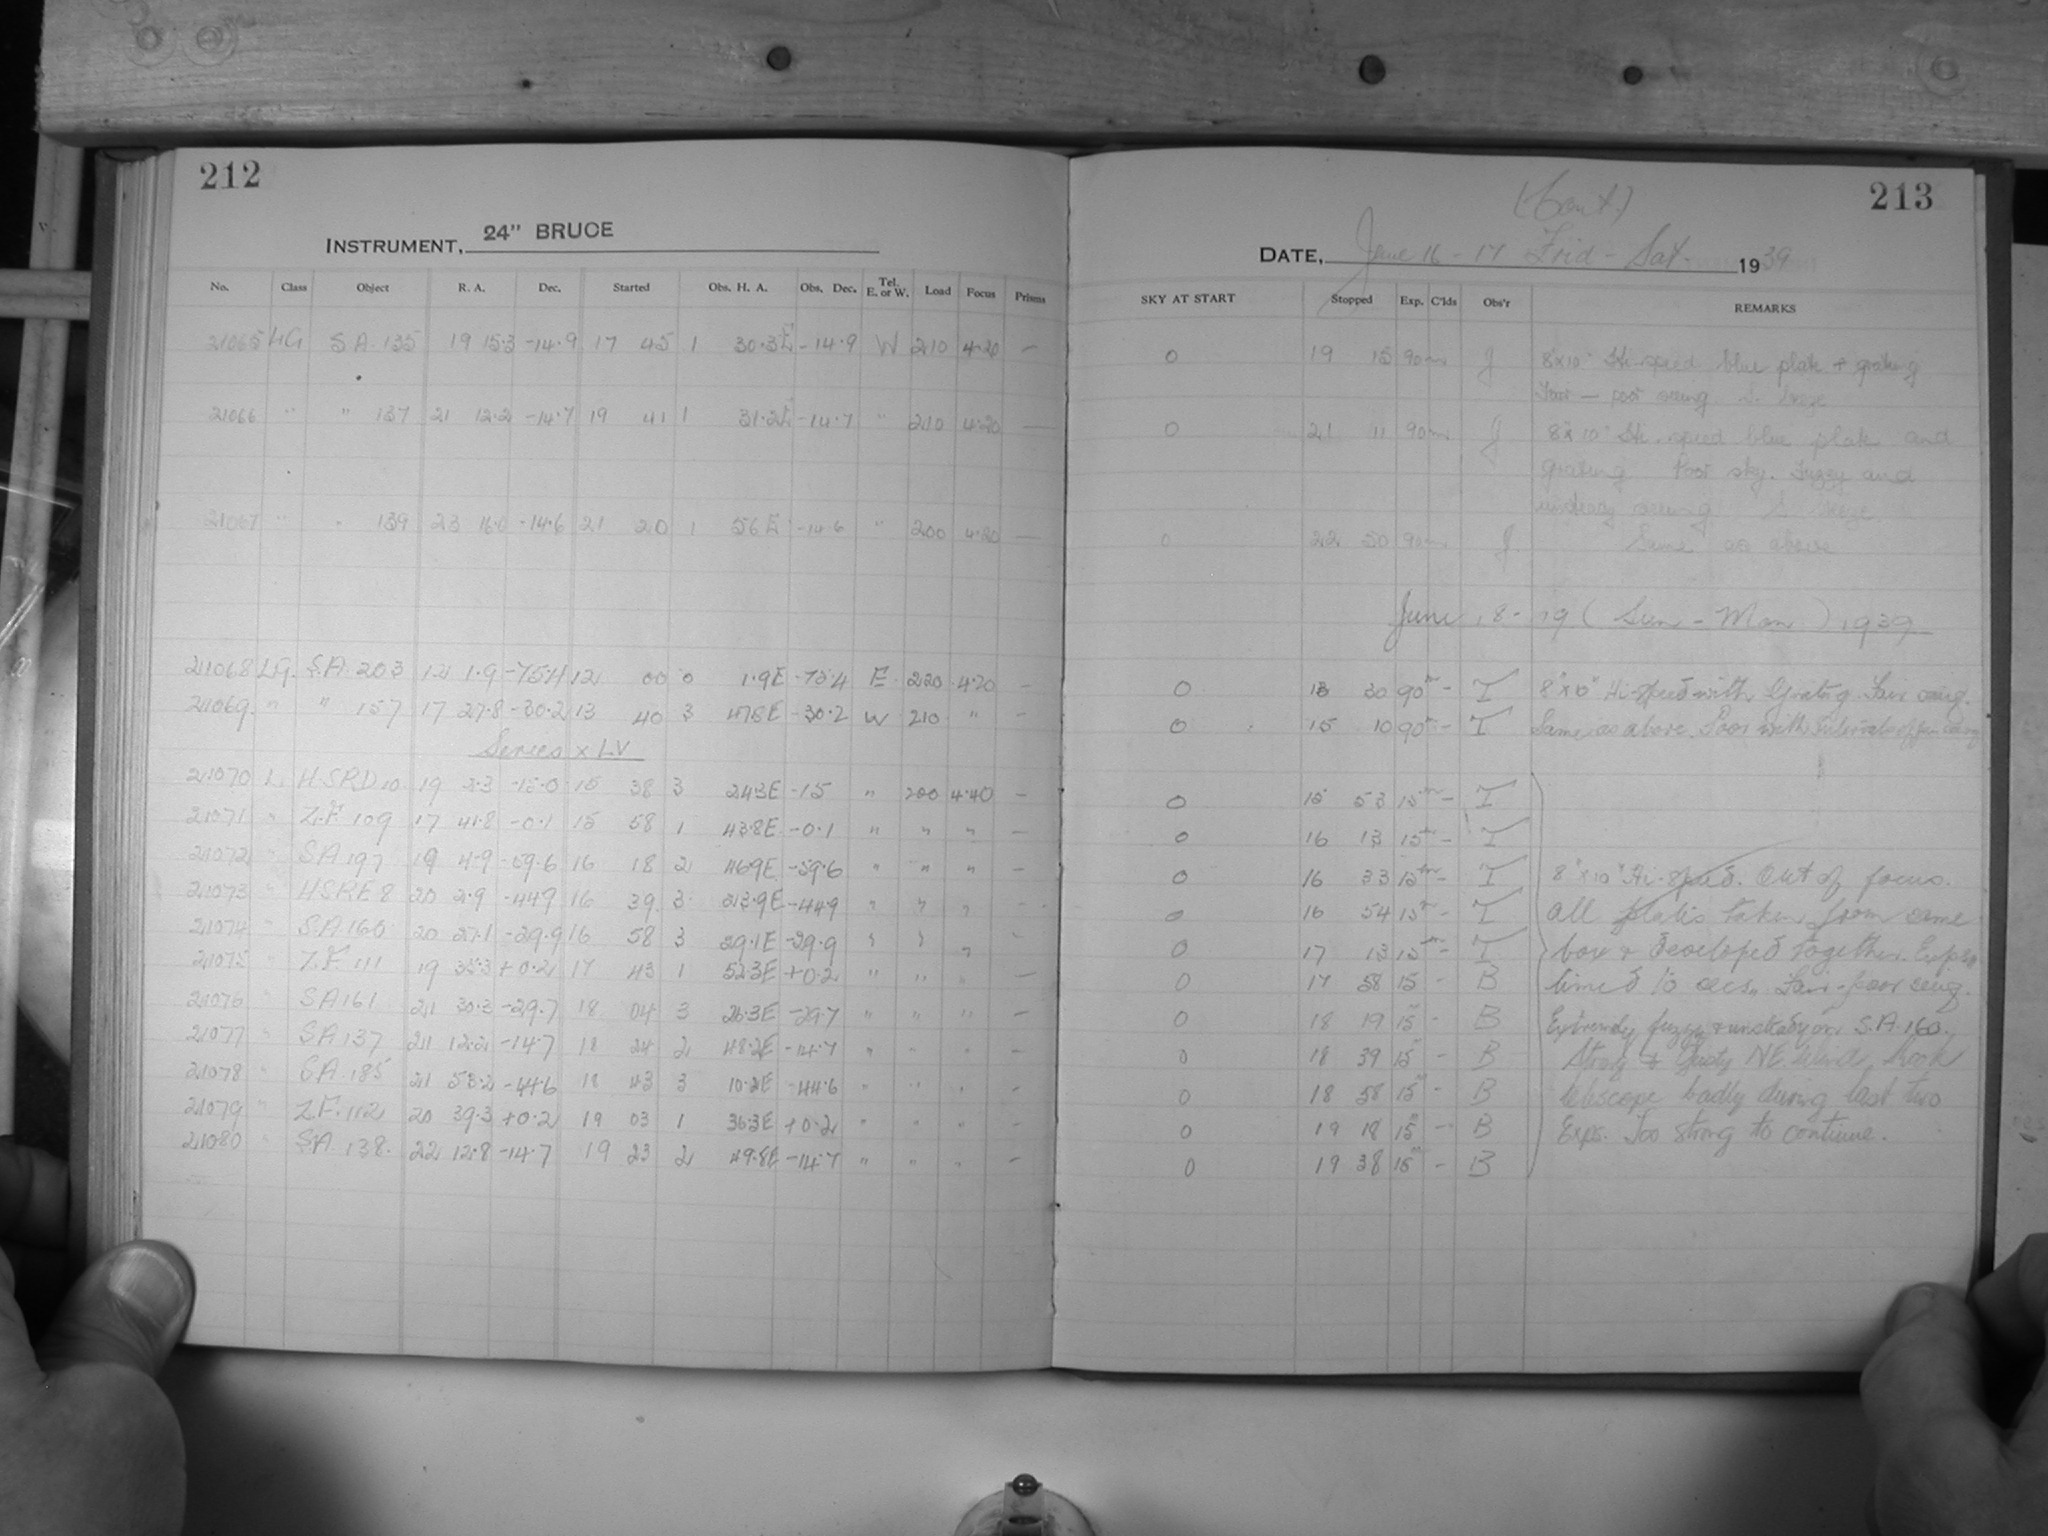 212
INSTRUMENT, 24" BRUCE
No. Class Object R. A. Dec. Started Obs. H. A. Obs. Dec. Tel. E. or W. Load Focus Prisms
21065 LG SA. 135 19 15.3 -14.9 17 45 1 30.3E -14.9 W 210 4.20 —
21066 " " 137 21 12.2 -14.7 19 41 1 31.2E -14.7 " 210 4.20 —
21067 " " 139 23 16.0 -14.6 21 20 1 56E -14.6 " 200 4.20 —
21068 LG. S.A. 203 12 1.9 -75.4 12 00 0 1.9E -75.4 E 220 4.20 -
21069 " " 157 17 27.8 -30.2 13 40 3 -30.2 W 210 " -
Series x LV
21070 L HSRD 10 19 -15.0 15 38 3 243E -15 " 200 4.40 -
21071 " Z.F. 109 17 41.8 -0.1 15 58 1 43.8E -0.1 " " " -
21072 " SA 197 19 4.9 -59.6 16 18 2 46.9E -59.6 " " " -
21073 " HSRE 8 20 2.9 -44.9 16 39 3 213.9E -44.9 " " " -
21074 " SA. 160 20 27.1 -29.9 16 58 3 29.1E -29.9 " " " -
21075 " Z.F. 111 19 35.3 +0.2 17 43 1 52.3E +0.2 " " " -
21076 " SA 161 21 30.3 -29.7 18 04 3 26.3E -29.7 " " " -
21077 " SA 137 21 12.2 -14.7 18 24 2 48.2E -14.7 " " " -
21078 " SA. 185 21 53.2 -44.6 18 43 3 10.2E -44.6 " " " -
21079 " Z.F. 112 20 39.3 +0.2 19 03 1 36.3E +0.2 " " " -
21080 " SA. 138. 22 12.8 -14.7 19 23 2 49.8E -14.7 " " " -
213
(Cont.)
DATE, June 16 - 17 Frid - Sat. 1939
SKY AT START Stopped Exp. C'lds Obs'r REMARKS
0 19 15 90m J 8"x10" Hi-speed blue plate + grating
Fair — poor seeing S. breeze
0 21 11 90m J 8"x10" Hi-speed blue plate and
grating Poor sky. Fuzzy and
unsteady seeing S. breeze
0 22 50 90m J Same as above
June 18 - 19 ( Sun - Mon ) 1939
0 13 30 90m - T 8"x10" Hi-speed with Grating. Fair seeing.
0 15 10 90m - T Same as above. Poor with intervals of fair seeing
0 15 53 15m - T
0 16 13 15m - T
0 16 33 15m - T 8"x10" Hi-speed. Out of focus.
0 16 54 15m - T All plates taken from same
0 17 13 15m - T box & developed together. Exps
0 17 58 15 - B timed 10 secs. Fair-poor seeing.
0 18 19 15m - B Extremely fuzzy & unsteady on S.A. 160.
0 18 39 15m - B Strong & Gusty NE. Wind shook
0 18 58 15m - B telescope badly during last two
0 19 18 15m - B Exps. Too strong to continue.
0 19 38 15m - B